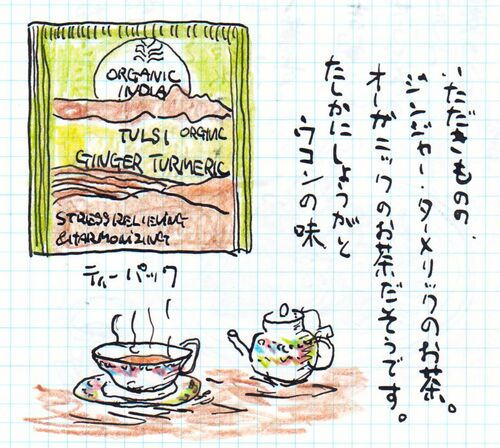 いただきもの、
ジンジャー・ターメリックのお茶。
オーガニックのお茶だそうです。
たしかにしょうがと
ウコンの味
ORGANIC
INDIA
TULSI ORGANIC
GINGER TURMERIC
STRESS RELIEVING
& HARMONIZING
ティーパック